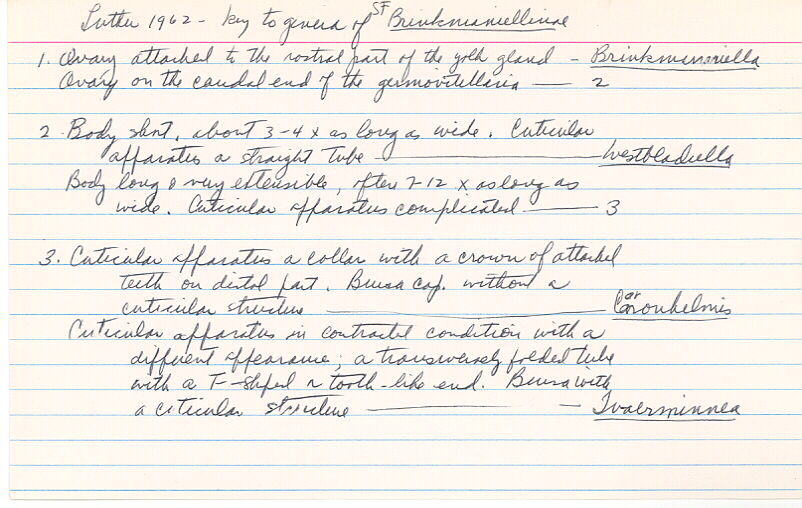 Luther 1962 - key to genera of SF Brinkmanniellinae
1. Ovary attached to the rostral part of the yolk gland - Brinkmanniella
Ovary on the caudal end of the germovitellaria — 2
2. Body short, about 3-4 x as long as wide. Cuticular
apparatus a straight tube — Westbladiella
Body long & very extensible, often 7-12 x as long as
wide. Cuticular apparatus complicated — 3
3. Cuticular apparatus a collar with a crown of attached
teeth on distal part. Bursa cop. without a
cuticular structure — Coronhelmis
Cuticular apparatus in contracted condition with a
different appearance; a transversely folded tube
with a T-shaped or tooth-like end. Bursa with
a cuticular structure — Tvaerminnea